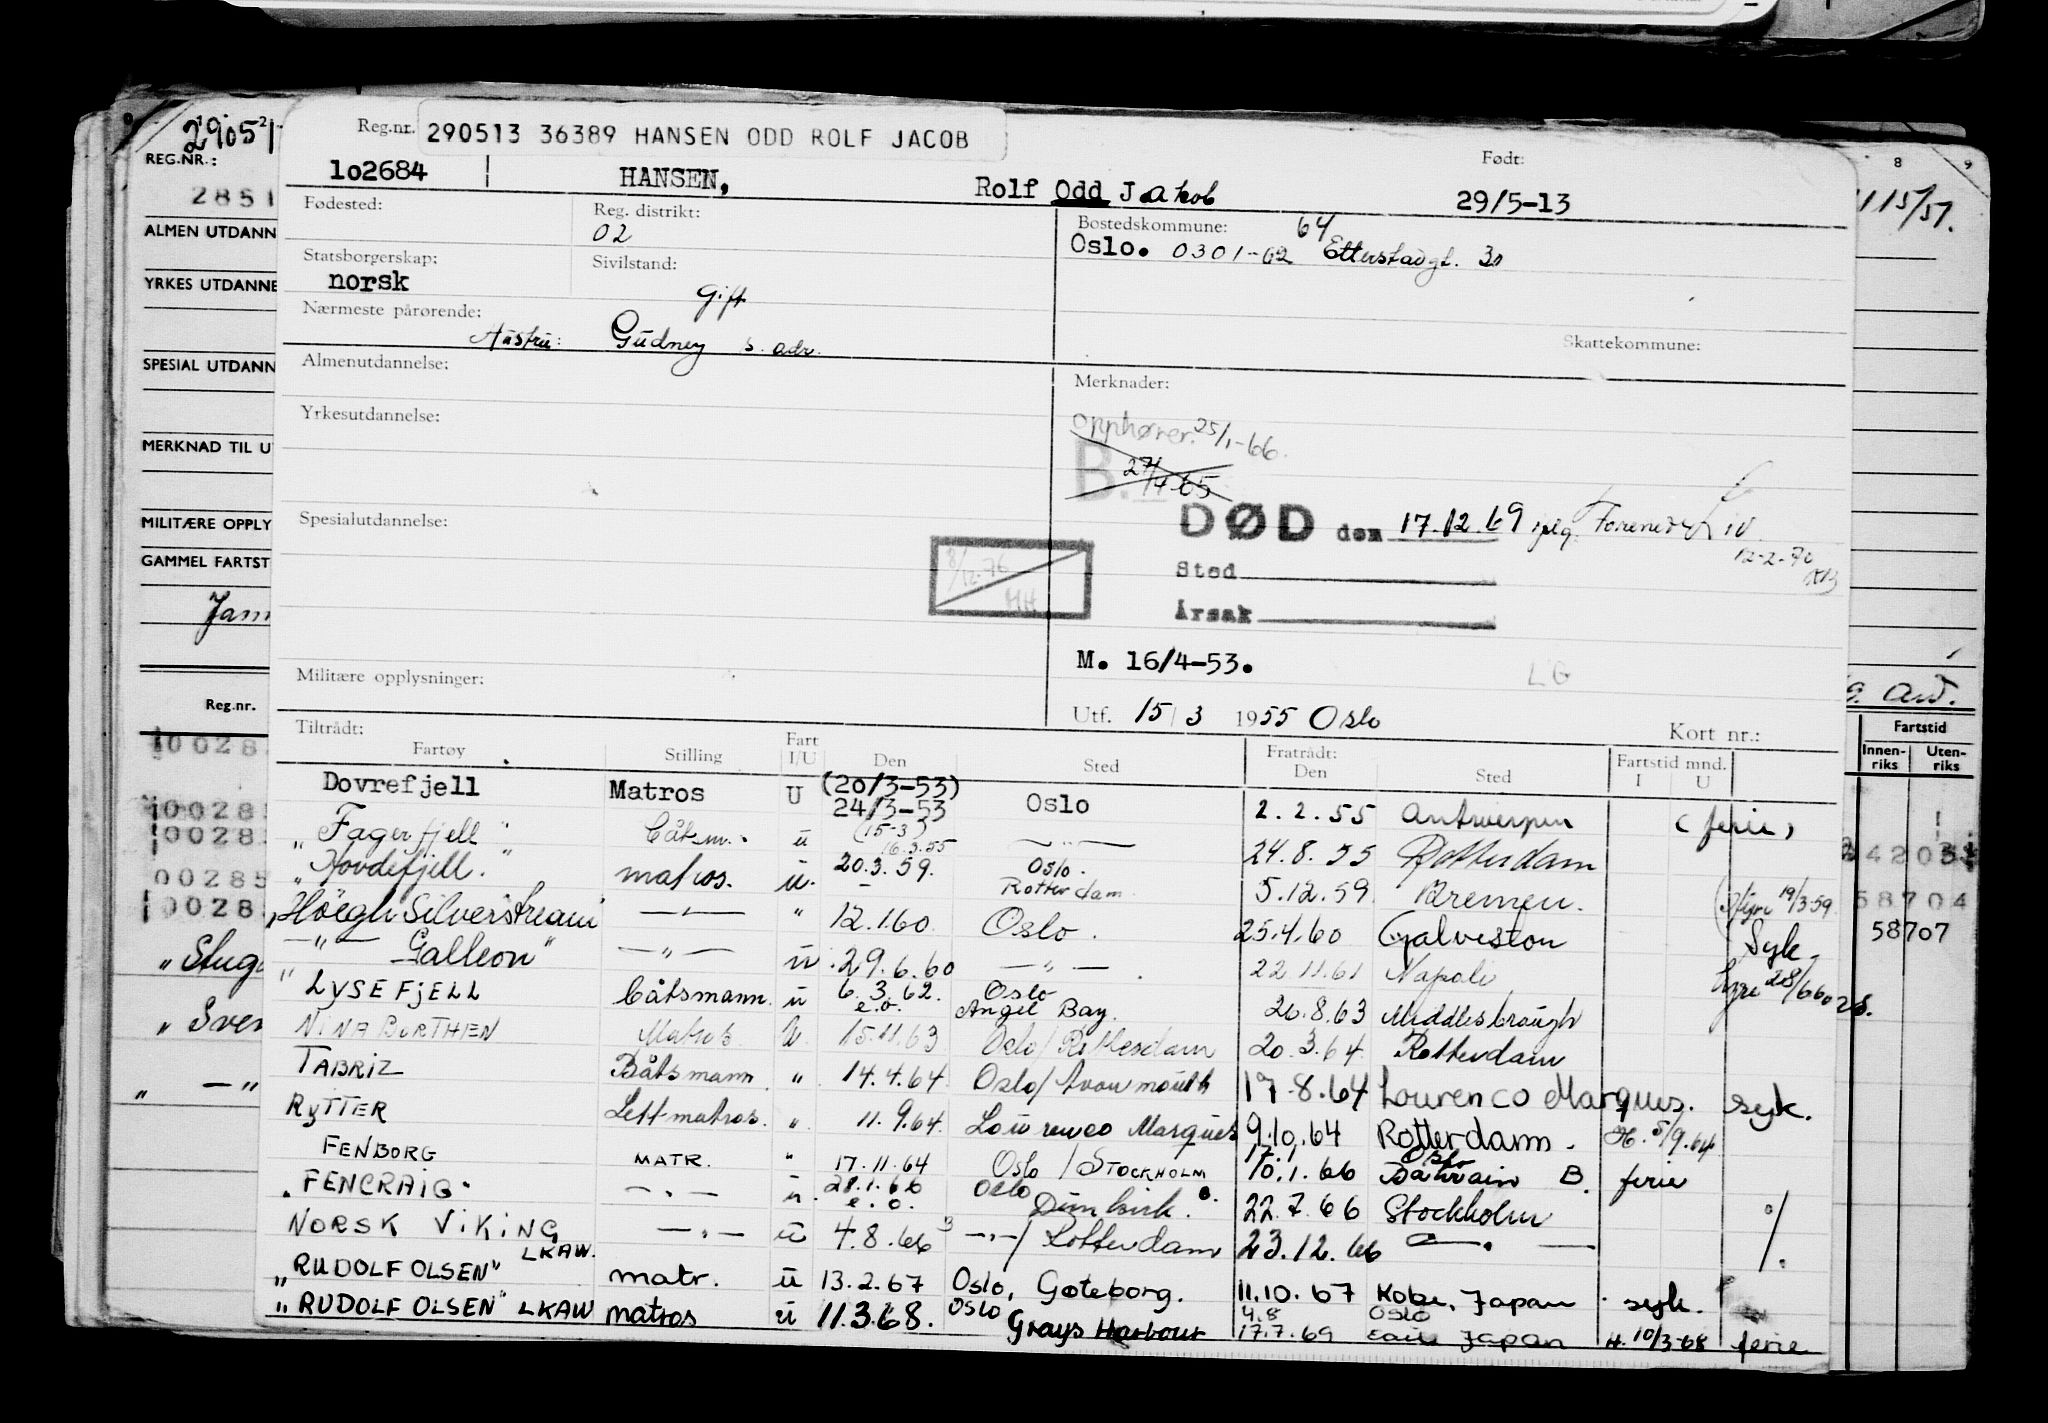 290513 36389 HANSEN ODD ROLF JACOB
Reg.nr.
Født:
1o2684 HANSEN, Rolf Odd Jakob 29/5-13
Fødested:
Reg. distrikt: 02
Bostedskommune: 64
Oslo. 0301-02 Etterstadgt. 30
Statsborgerskap: norsk
Sivilstand: Gift
Nærmeste pårørende: Hustru: Gudney s. adr.
Skattekommune:
Almenutdannelse:
Merknader:
Yrkesutdannelse:
Opphører. 25/1-66.
B. 27/4-65
DØD den 17.12.69 iflg. Forenede Liv
12-2-70
Spesialutdannelse:
8/12.76
HH
Sted
Årsak
M. 16/4-53.
LG
Militære opplysninger:
Utf. 15/3 1955 Oslo
Kort nr.:
Tiltrådt:
Fartøy Stilling Fart I/U Den Sted Fratrådt: Den Sted Fartstid mnd. I U
Dovrefjell Matros U (20/3-53) 24/3-53 Oslo 2.2.55 Antwerpen (ferie)
"Fagerfjell" Båtsm. u (15-3) 16.3.55 — " — 24.8.55 Rotterdam
"Hovdefjell." matros. u. 20.3.59. Oslo. Rotterdam. 5.12.59. Bremen. 19/3-59
"Höegh Silverstream — " — " 12.1.60. Oslo. 25.4.60 Galveston Syk.
— " — Galleon" — " — u. 29.6.60 — " — . 22.11.61 Napoli 28/6 60
"LYSEFJELL Båtsmann. u 6.3.62. e.o. Oslo Angel Bay. 20.8.63 Middlesbrough
NINA BORTHEN Matros U. 15.11.63 Oslo/Rotterdam 20.3.64. Rotterdam
TABRIZ Båtsmann. " 14.4.64. Oslo/Avonmouth 17.8.64 Lourenco Marques. syk.
RYTTER Lettmatros. " 11.9.64. Lourenco Marques 9.10.64 Rotterdam. H. 5/9.64
FENBORG MATR. " 17.11.64 Oslo/STOCKHOLM 17.1 10.1.66 Oslo Bahrain B. ferie
"FENCRAIG" — " — u. 28.1.66 e.o. Oslo Dunkirk. 22.7.66 Stockholm %
NORSK VIKING — " — u 4.8.66 — " — / Rotterdam 23.12.66 — " — %.
"RUDOLF OLSEN" LKAW. matr. u 13.2.67 Oslo, Gøteborg. 11.10.67 Kobe, Japan syk.
"RUDOLF OLSEN" LKAW matros u 11.3.68. Oslo Grays Harbour 4.8 17.7.69 Oslo Japan H. 10/3-68 ferie
2905
REG.NR.:
2851
ALMEN UTDANN
YRKES UTDANNE
SPESIAL UTDANN
MERKNAD TIL U
MILITÆRE OPPLY
GAMMEL FARTST
Reg.nr.
0028
0028
0028
00285
0028
8 9
115/51.
Fartstid
Innen-riks Uten-riks
58704
58707